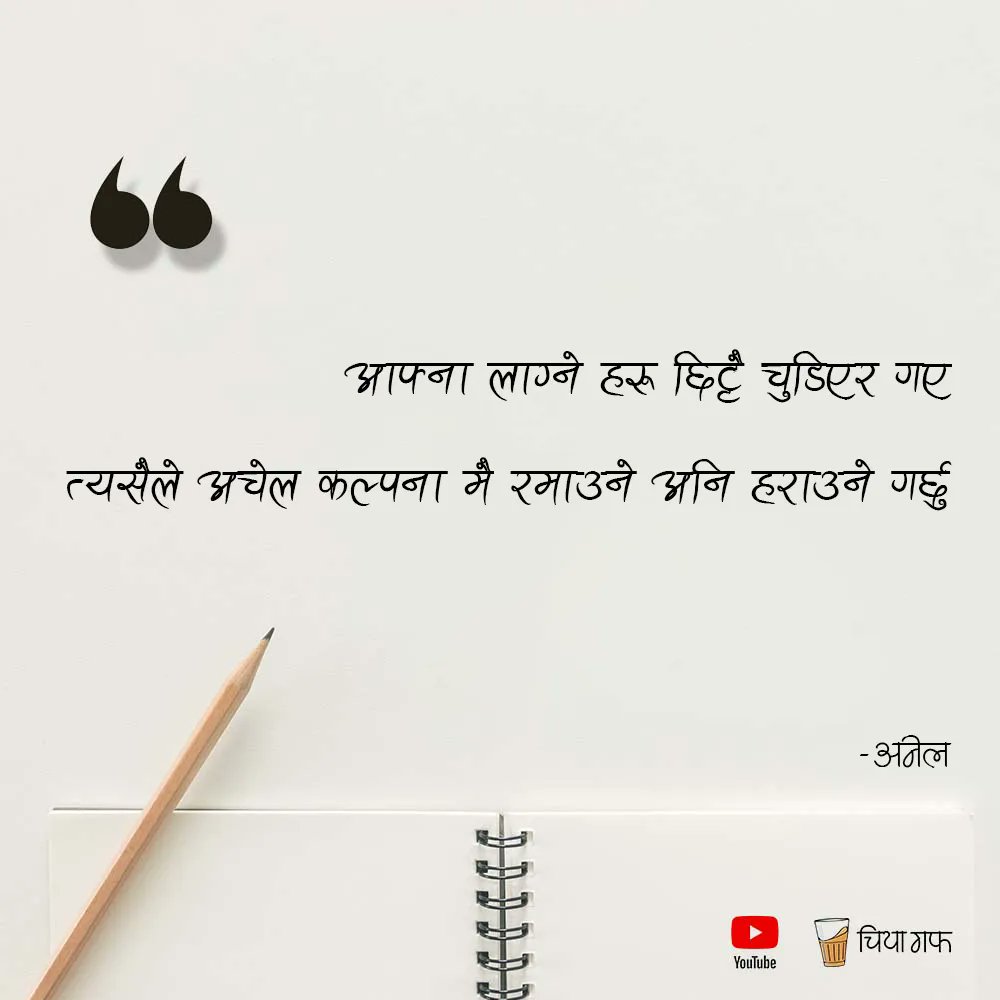 आफ्ना लाग्ने हरू छिट्टै चुडिएर गए
त्यसैले अचेल कल्पना मै रमाउने अनि हराउने गर्छु
-अनिल
YouTube
चिया गफ